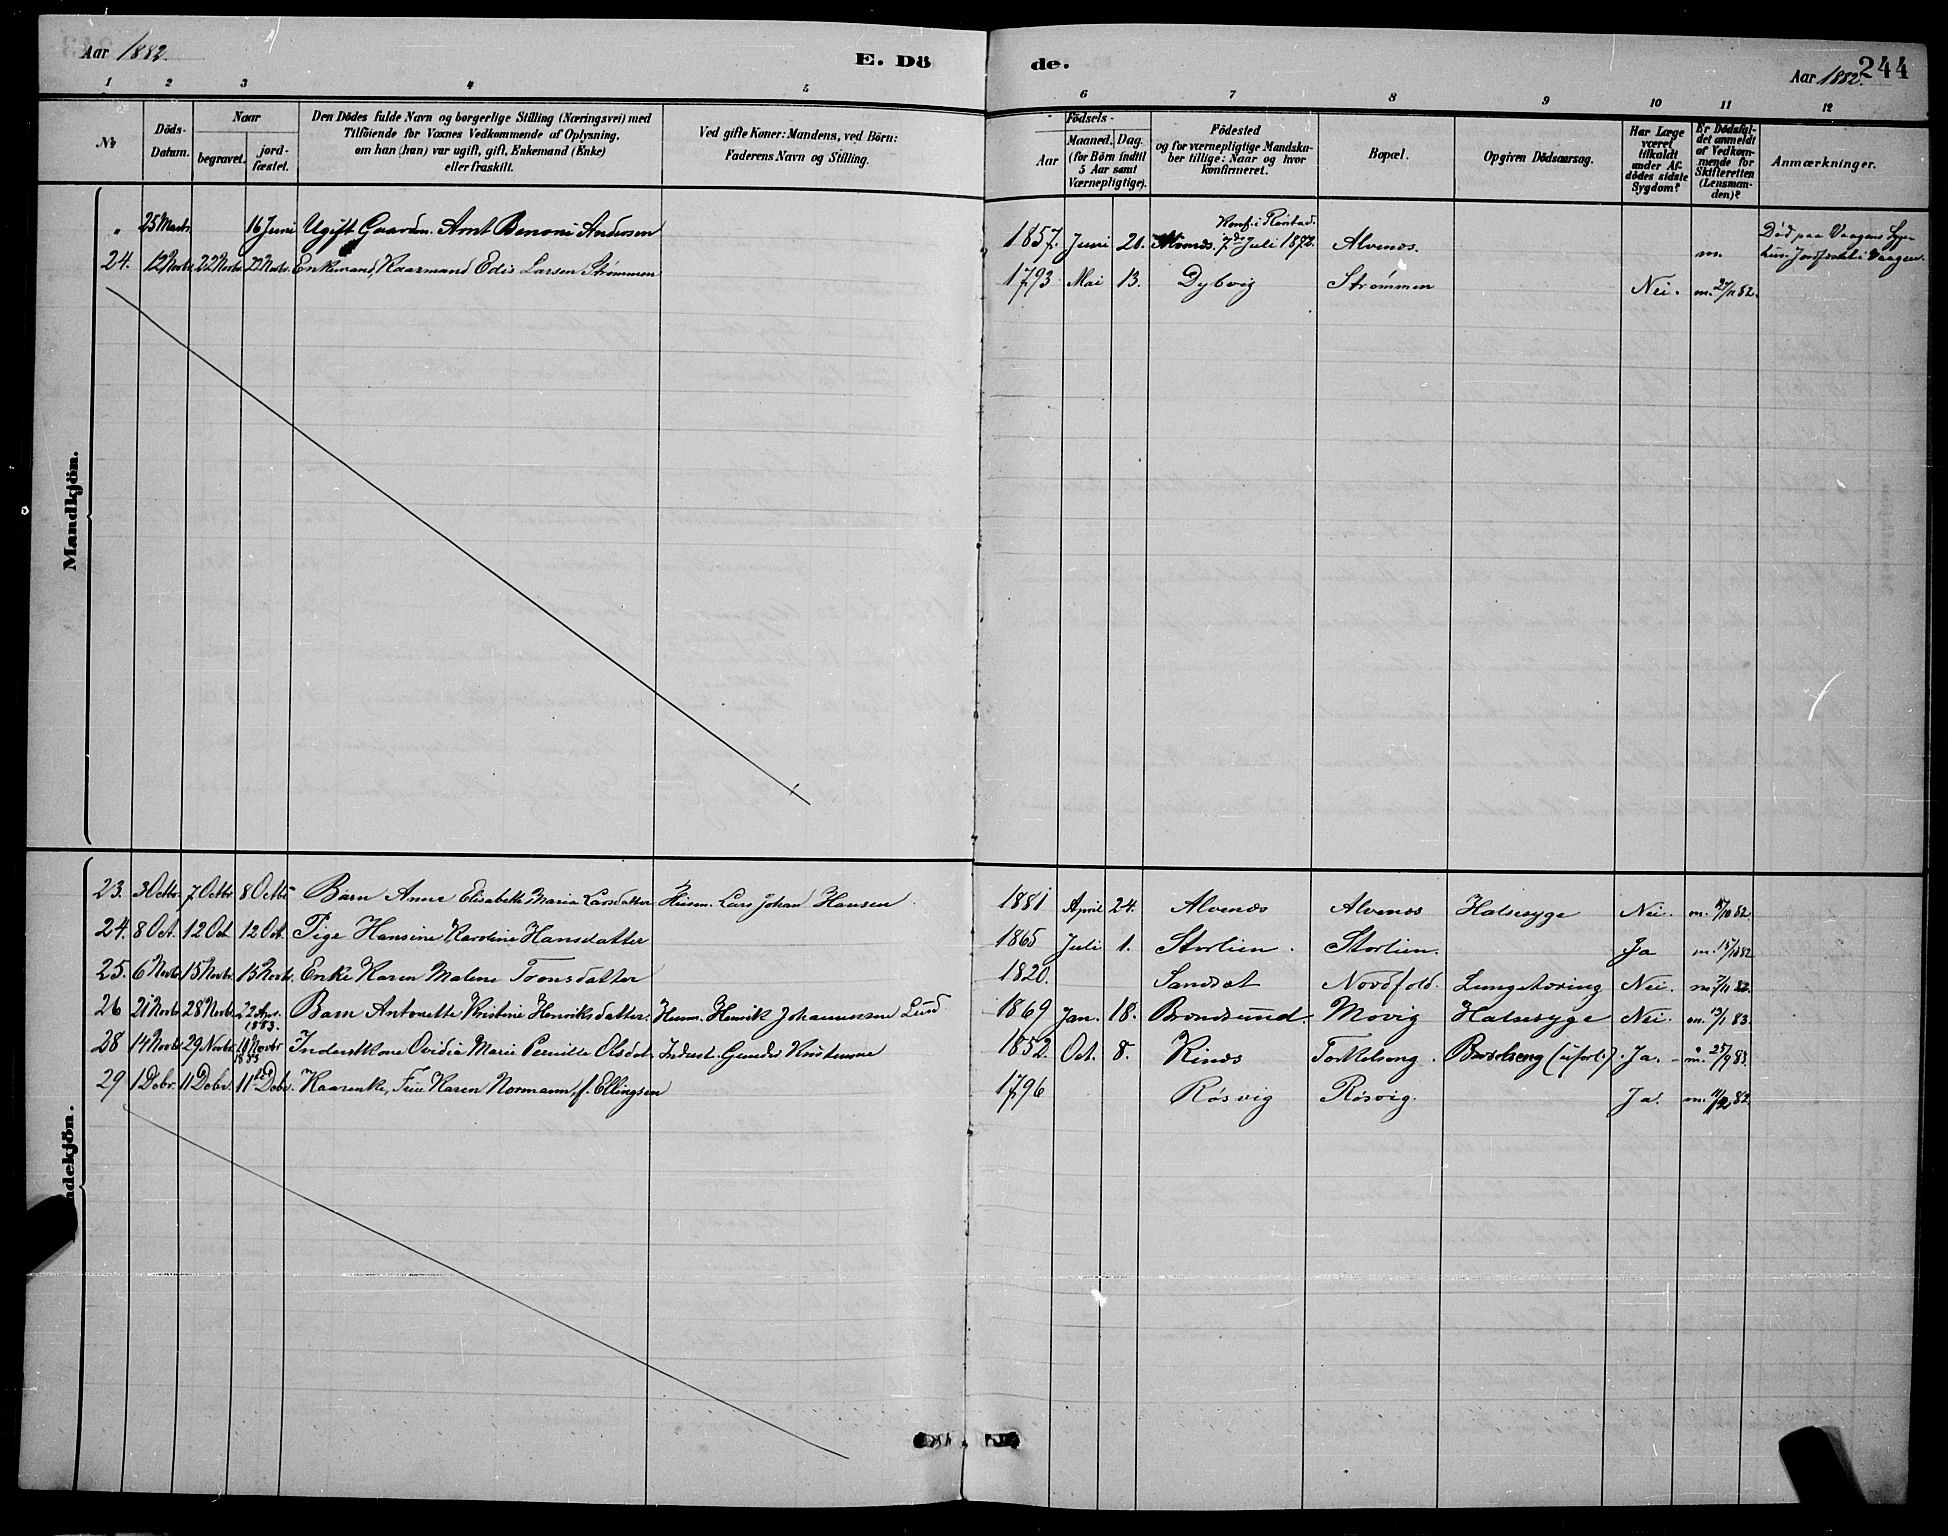 Aar 1882.
E. Dö
de.
Aar 1882.
244
1 2 3 4 5 6 7 8 9 10 11 12
No
Döds-
Datum.
Naar
begravet.
jord-
fæstet.
Den Dödes fulde Navn og borgerlige Stilling (Næringsvei) med
Tilföiende for Voxnes Vedkommende af Oplysning,
om han (hun) var ugift, gift, Enkemand (Enke)
eller fraskilt.
Ved gifte Koner: Mandens, ved Börn:
Faderens Navn og Stilling.
Födsels-
Aar
Maaned.
Dag.
(for Börn indtil
5 Aar samt
Værnepligtige).
Födested
og for værnepligtige Mandska-
ber tillige: Naar og hvor
konfirmeret.
Bopæl.
Opgiven Dödsaarsag.
Har Læge
været
tilkaldt
under Af-
dödes sidste
Sygdom?
Er Dödsfal-
det anmeldt
af Vedkom-
mende for
Skifteretten
(Lensman-
den)?
Anmærkninger.
Mandkjön.
" 25 Marts 16 Juni Ugift Gaardm. Arnt Benoni Andersen 1857. Juni 20. Alvenes. Konf. i Rørstad. 7de Juli 1872. Alvenes. m. Død paa Vaagens Syge-
hus. Jordfæstet i Vaagen.
24. 12 Novbr 22 Novbr 22 Novbr. Enkemand, Kaarmand Edis Larsen Strømmen 1793 Mai 13. Dybvig Strømmen Nei. m. 27/11 82.
ndekjön.
23. 3 Octbr. 7 Octbr 8 Octbr Barn Anne Elisabeth Maria Larsdatter Husm. Lars Johan Hansen. 1881 April 24. Alvenes Alvenes Halsesyge Nei. m. /10 82
24. 8 Oct. 12 Oct 12 Oct. Pige Hansine Karoline Hansdatter 1865 Juli 1. Storlien. Storlien. Ja m. 15/10 82
25. 6 Novbr 15 Novbr 15 Novbr. Enke Karen Malene Tonsdatter 1820. Sandset Nordfold. Lungetæring Nei. m. 7/11 82.
26 21 Novbr 28 Novbr 22 Apr. 1883. Barn Antonette Kristine Henriksdatter. Husm. Henrik Johannessen Lund 1869 Jan. 18. Brondsund. Movig Halsesyge Nei. m. 13/1 83.
28 14 Novbr 29 Novbr 10 Novbr 1883 Inderstkone Ovidia Marie Pernille Olsdat. Inderst. Gunder Kristensen 1852. Oct. 8. Kines Torkelseng. Barselseng (uforl.). Ja. m. 25/9 83.
29 1 Debr. 11 Debr. 11te Debr. Kaarenke, Frue Karen Normann, f. Ellingsen 1796 Røsvig Røsvig. Ja. m. 11/12 82.